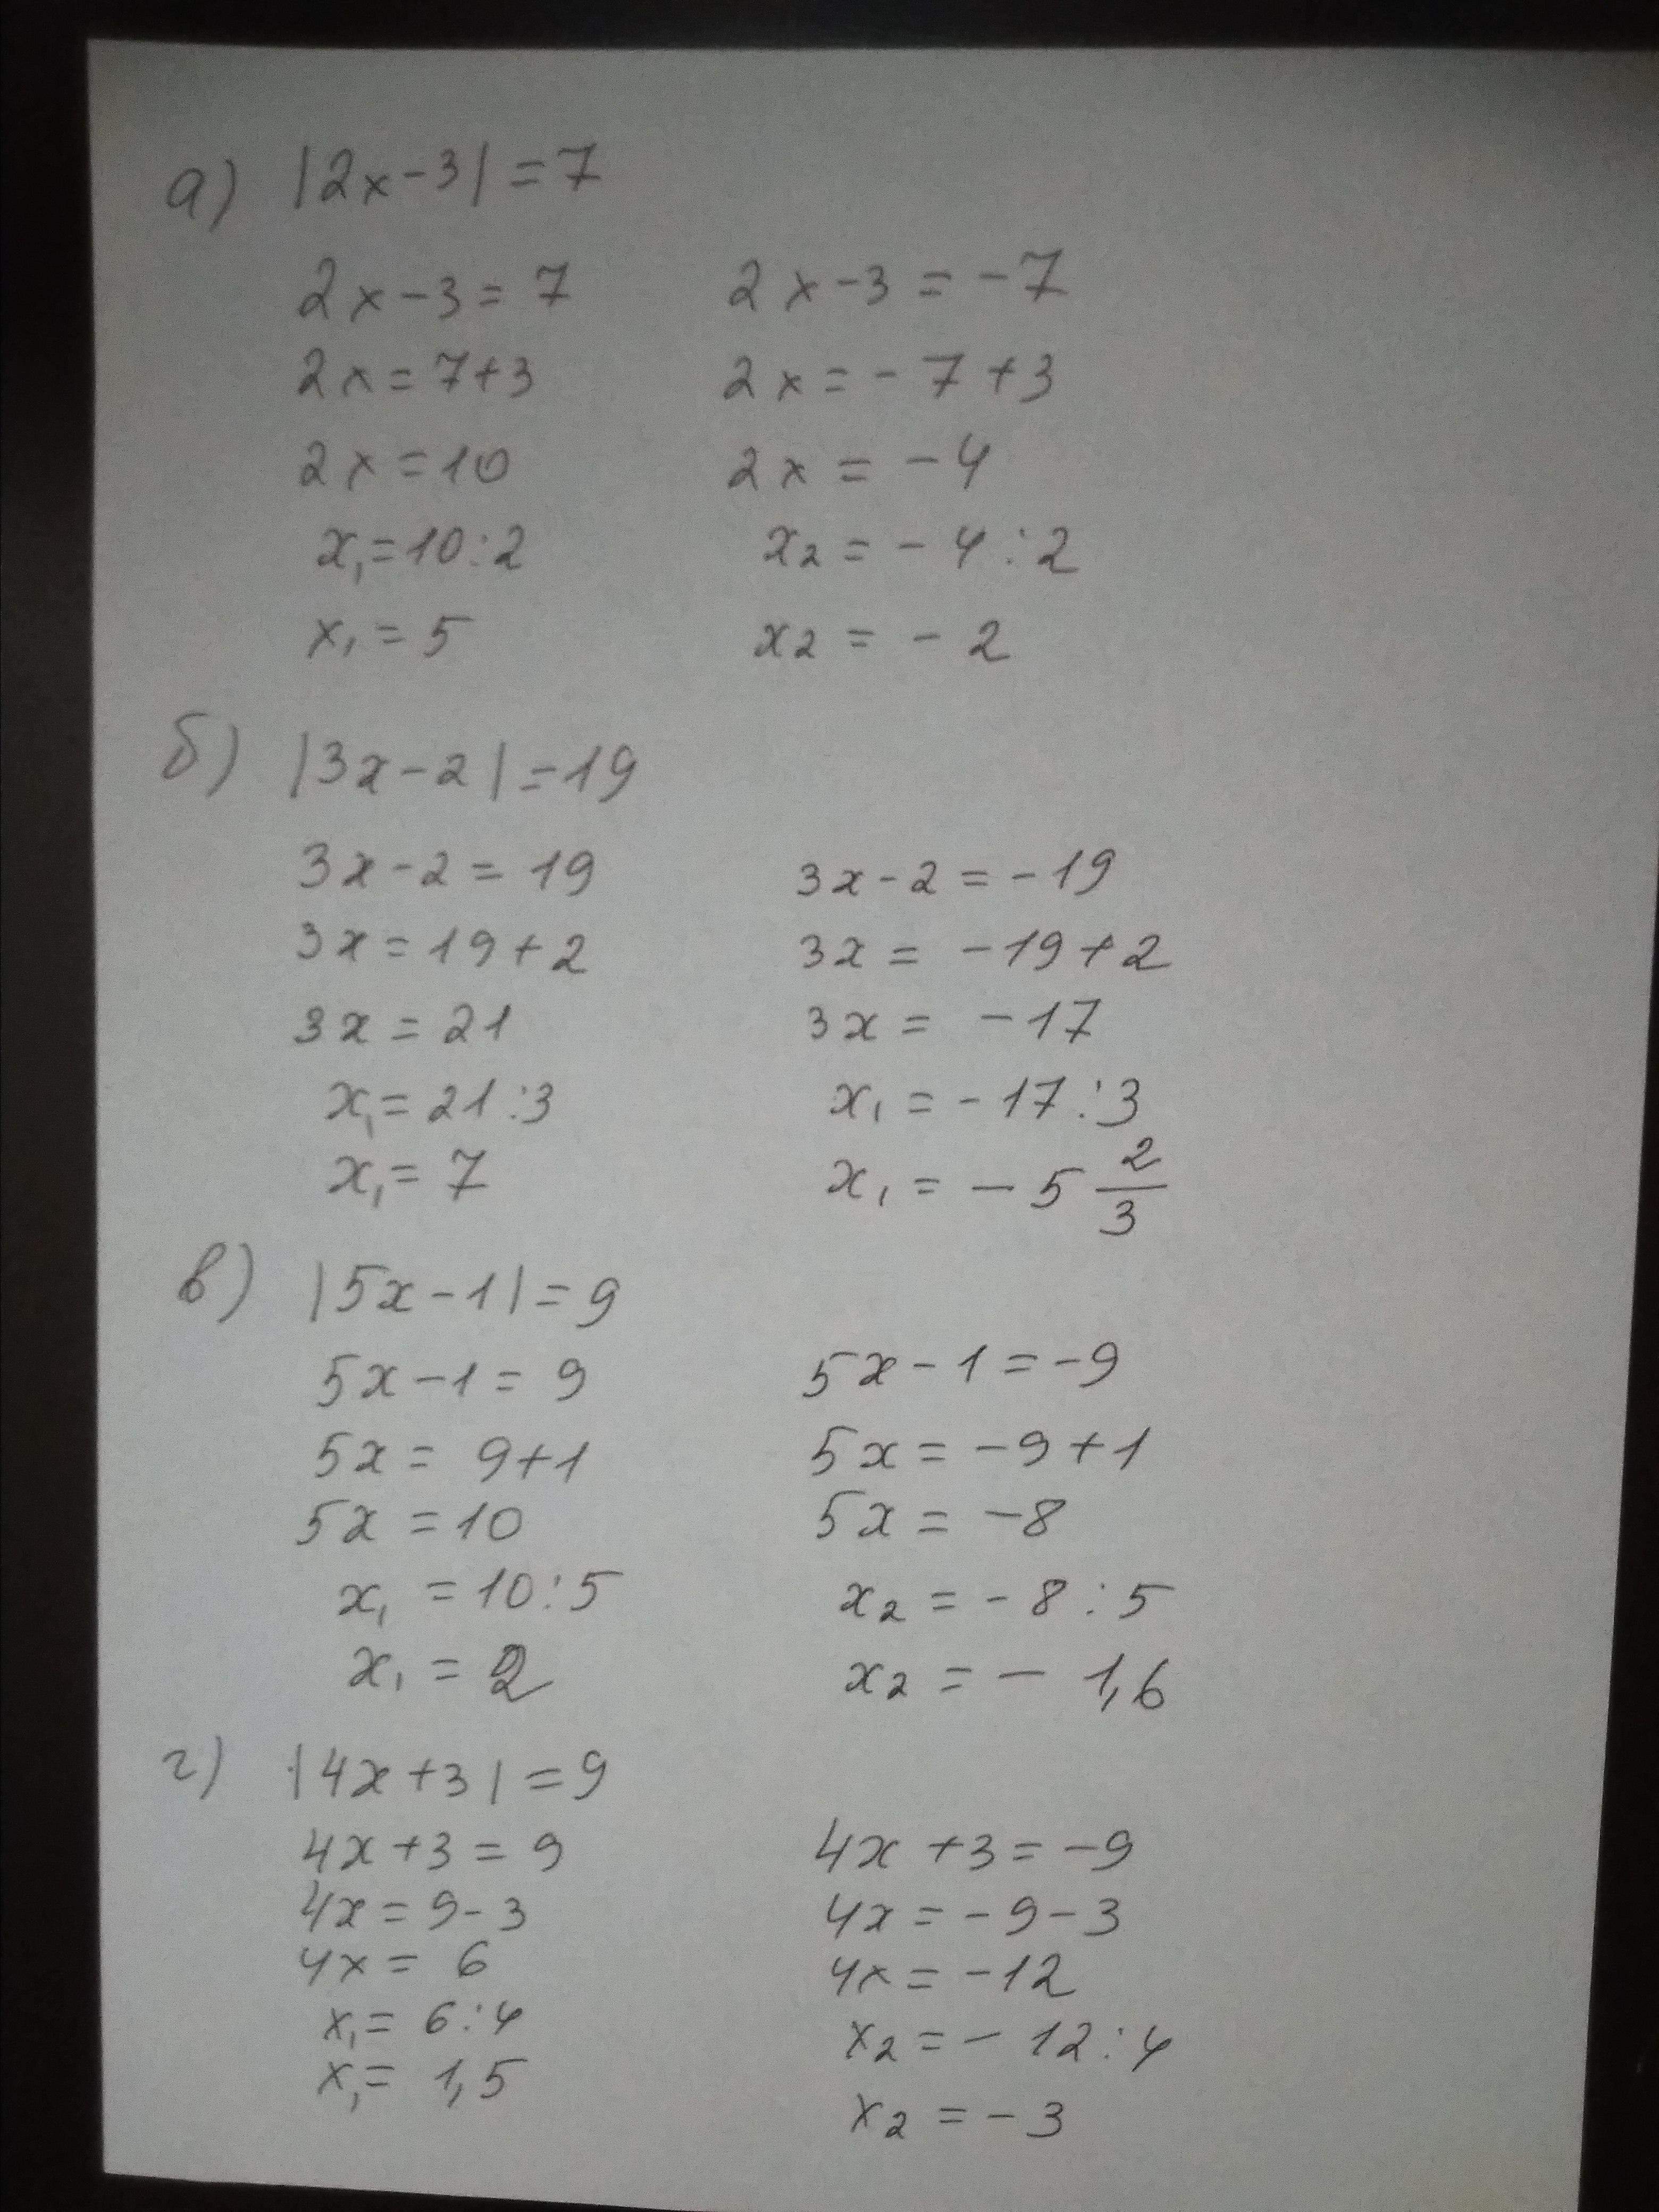 а) |2x-3|=7
2x-3=7 2x-3=-7
2x=7+3 2x=-7+3
2x=10 2x=-4
x₁=10:2 x₂=-4:2
x₁=5 x₂=-2
б) |3x-2|=19
3x-2=19 3x-2=-19
3x=19+2 3x=-19+2
3x=21 3x=-17
x₁=21:3 x₁=-17:3
x₁=7 x₁=-5 2/3
в) |5x-1|=9
5x-1=9 5x-1=-9
5x=9+1 5x=-9+1
5x=10 5x=-8
x₁=10:5 x₂=-8:5
x₁=2 x₂=-1,6
г) |4x+3|=9
4x+3=9 4x+3=-9
4x=9-3 4x=-9-3
4x=6 4x=-12
x₁=6:4 x₂=-12:4
x₁=1,5 x₂=-3